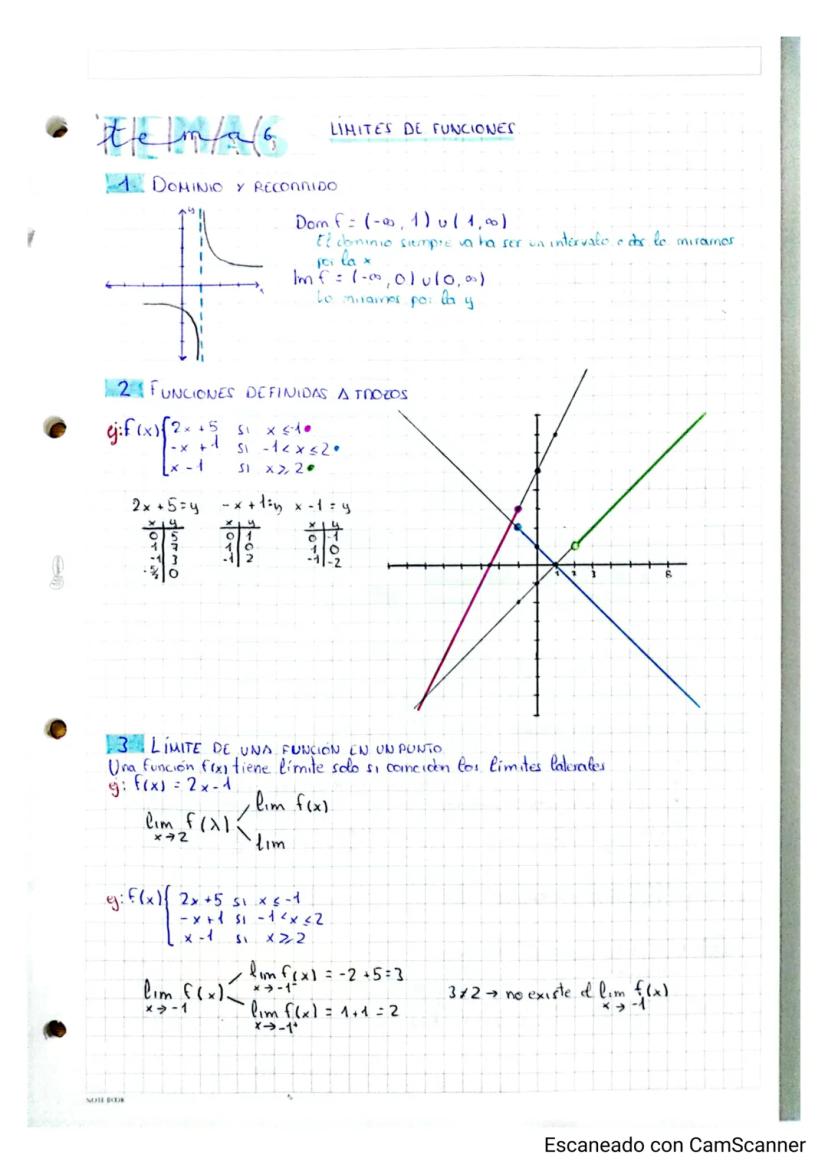 tema 6
LÍMITES DE FUNCIONES
1. DOMINIO Y RECORRIDO
y
x
Dom f = (-∞, 1) ∪ (1, ∞)
El dominio siempre va ha ser un intervalo o dos lo miramos
por la x
Im f = (-∞, 0) ∪ (0, ∞)
Lo miramos por la y
2 FUNCIONES DEFINIDAS A TROZOS
ej: f(x) { 2x +5 si x ≤ -1
-x +1 si -1 < x ≤ 2
x - 1 si x ≥ 2
2x +5 = y -x +1 = y x - 1 = y
x y x y x y
0 5 0 1 0 -1
1 7 1 0 1 0
-1 3 -1 2 -1 -2
-5/2 0
1 2 3
3 LÍMITE DE UNA FUNCIÓN EN UN PUNTO
Una función f(x) tiene límite solo si coinciden los límites laterales
ej: f(x) = 2x - 1
lim f(x)
lim f(x)
x→2
lim
ej: f(x) { 2x +5 si x ≤ -1
-x +1 si -1 < x ≤ 2
x - 1 si x ≥ 2
lim f(x) = -2 +5 = 3
x→-1⁻
lim f(x)
x→-1
3 ≠ 2 → no existe el lim f(x)
x→-1
lim f(x) = 1+1 = 2
x→-1⁺
NOTE BOOK
Escaneado con CamScanner